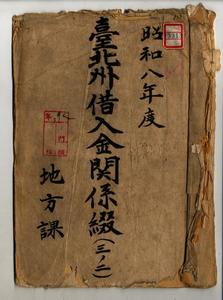 昭和八年度
臺北州借入金関係綴(三ノ二)
地方課